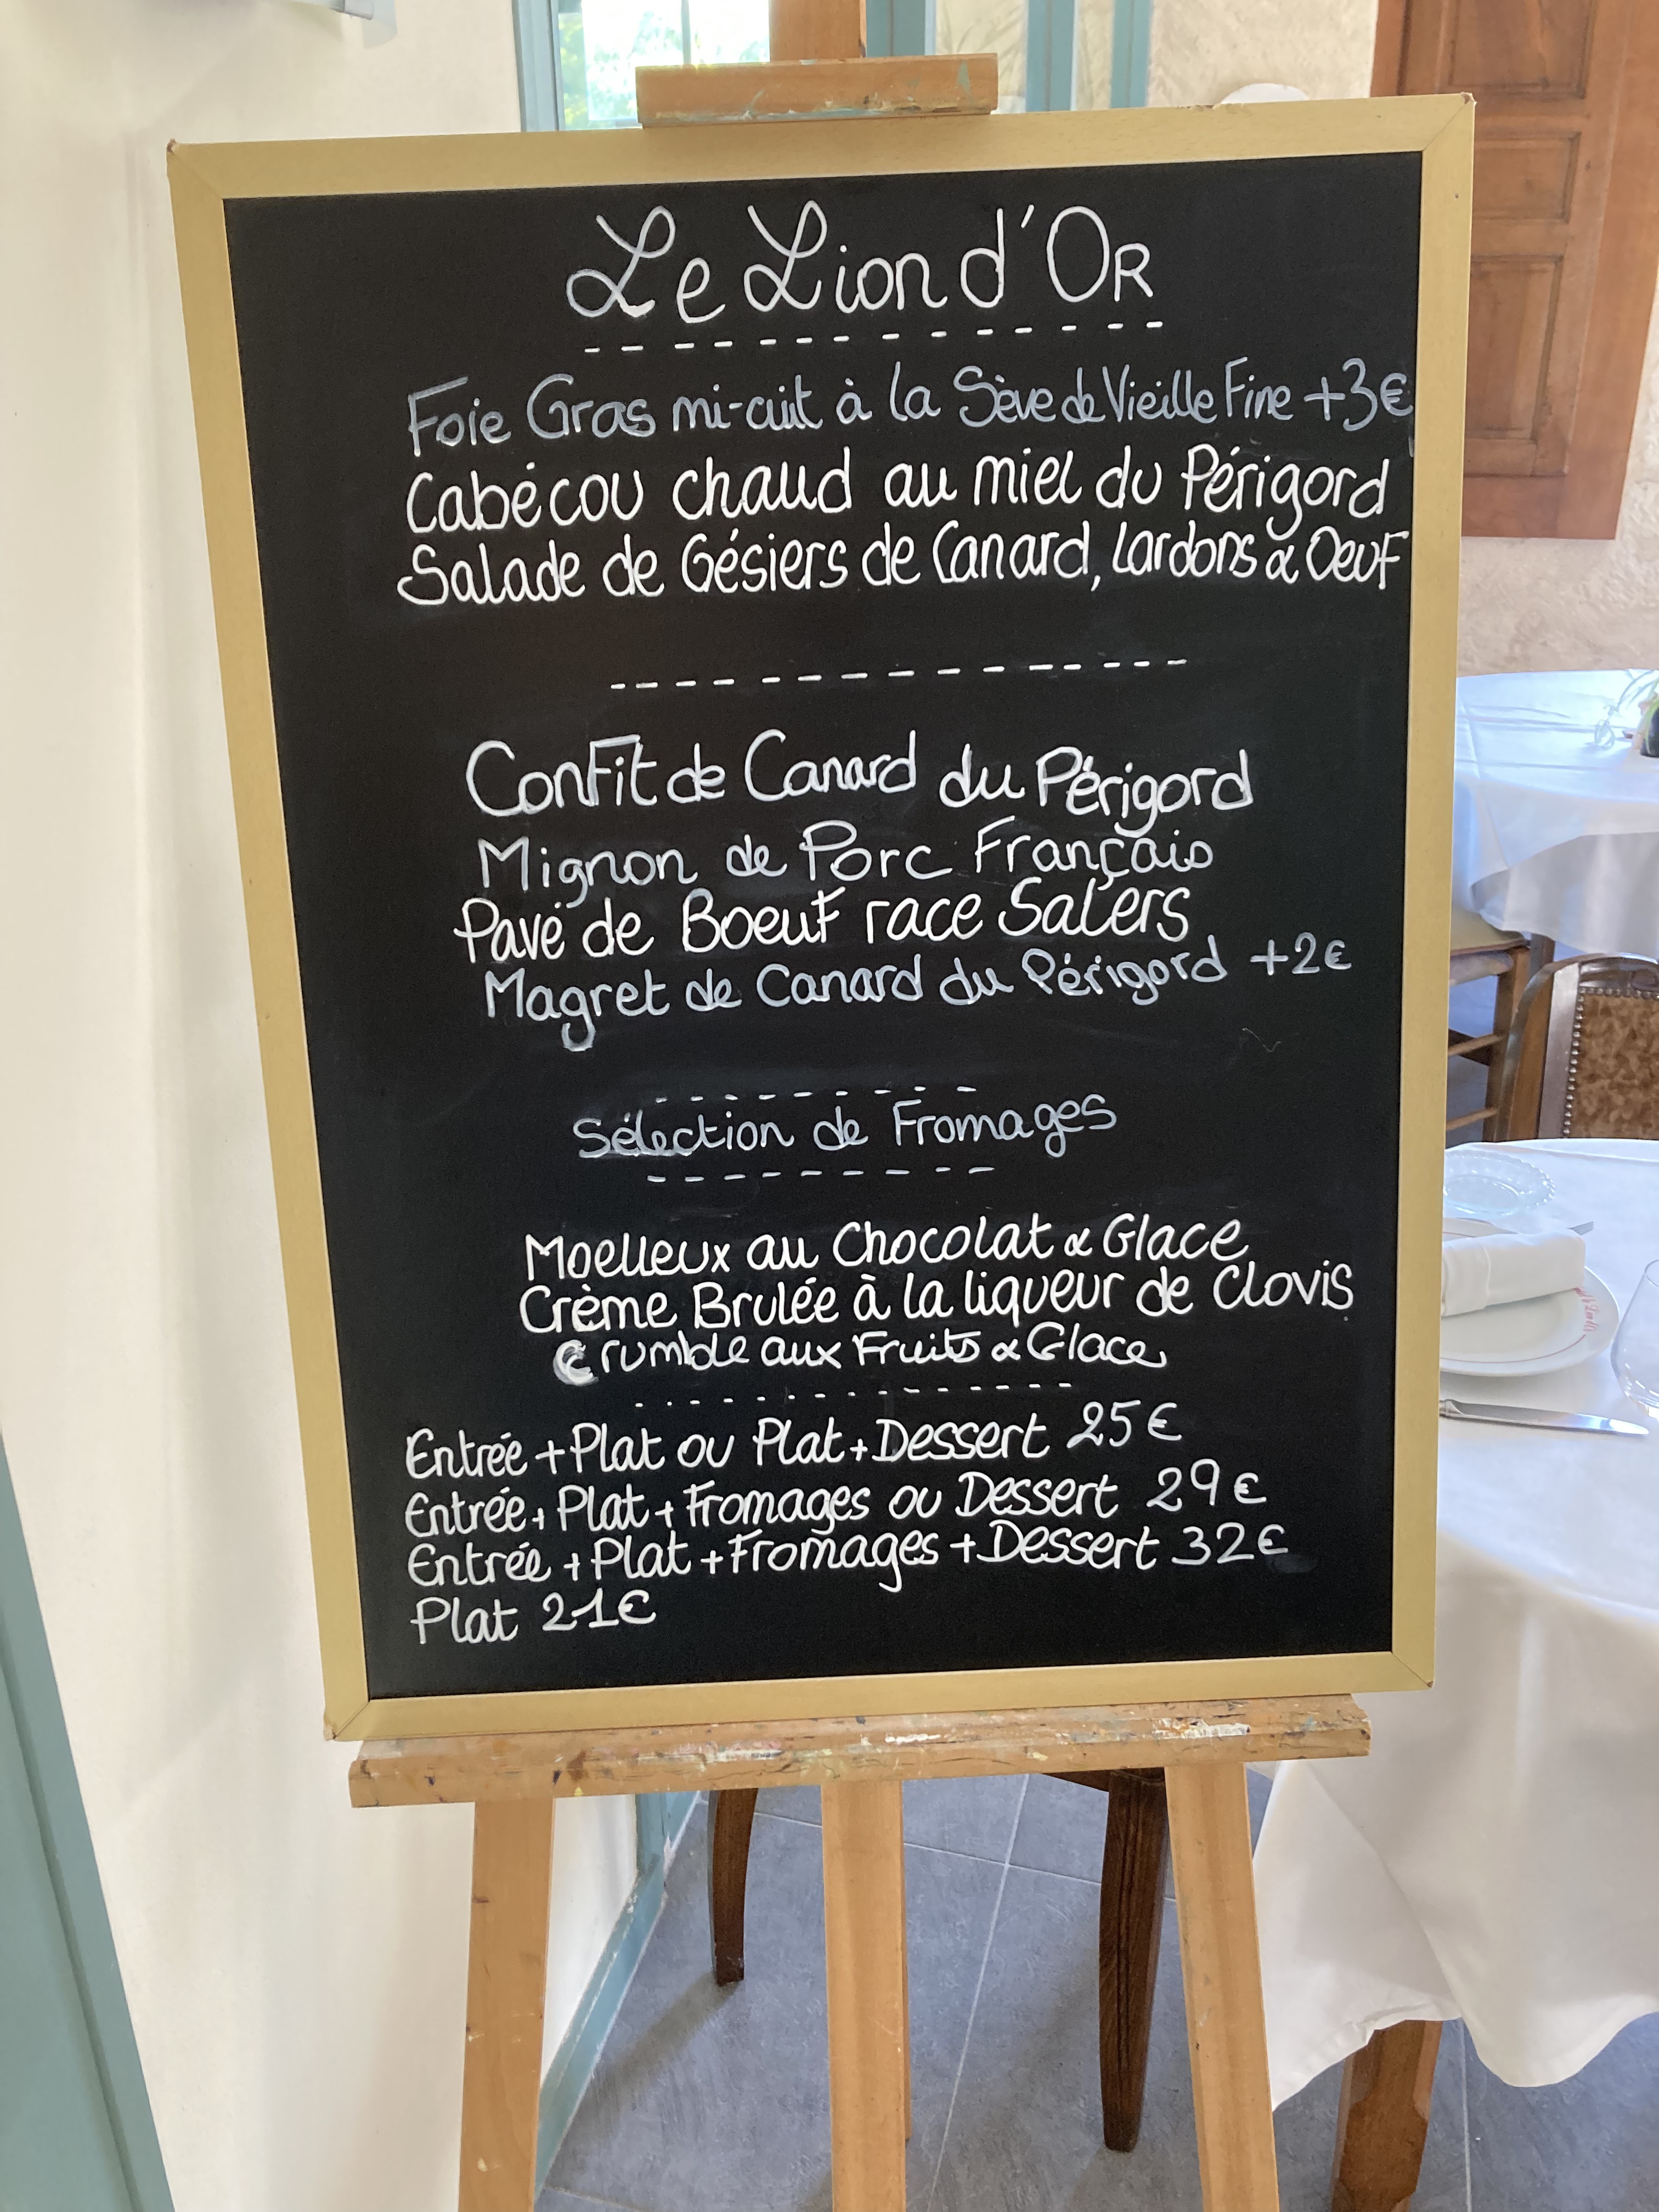 Le Lion d'Or
Foie Gras mi-cuit à la Sève de Vieille Fine +3€
Cabécou chaud au miel du Périgord
Salade de Gésiers de Canard, Lardons & Oeuf
Confit de Canard du Périgord
Mignon de Porc Français
Pavé de Boeuf race Salers
Magret de Canard du Périgord +2€
Sélection de Fromages
Moelleux au Chocolat & Glace
Crème Brulée à la liqueur de Clovis
Crumble aux Fruits & Glace
Entrée + Plat ou Plat + Dessert 25€
Entrée + Plat + Fromages ou Dessert 29€
Entrée + Plat + Fromages + Dessert 32€
Plat 21€